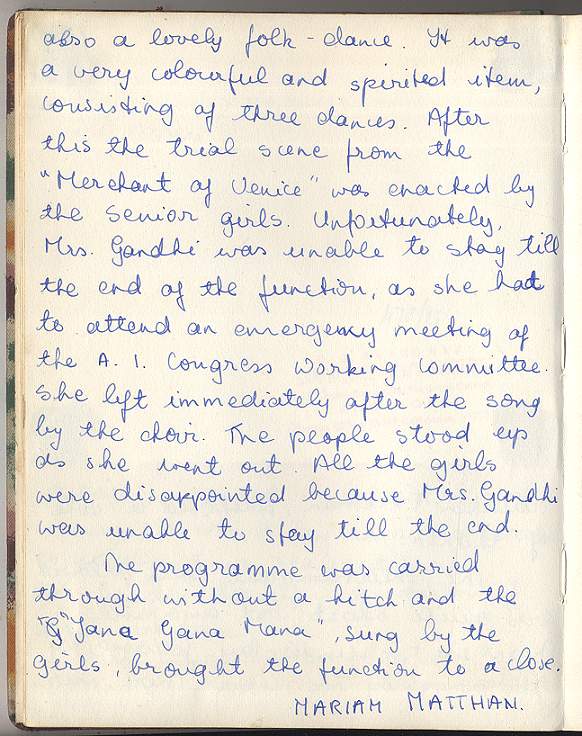 also a lovely folk-dance. It was
a very colourful and spirited item,
consisting of three dances. After
this the trial scene from the
"Merchant of Venice" was enacted by
the senior girls. Unfortunately,
Mrs. Gandhi was unable to stay till
the end of the function, as she had
to attend an emergency meeting of
the A. I. Congress Working Committee.
She left immediately after the song
by the choir. The people stood up
as she went out. All the girls
were disappointed because Mrs. Gandhi
was unable to stay till the end.
The programme was carried
through without a hitch and the
"Jana Gana Mana", sung by the
girls, brought the function to a close.
MARIAM MATTHAN.